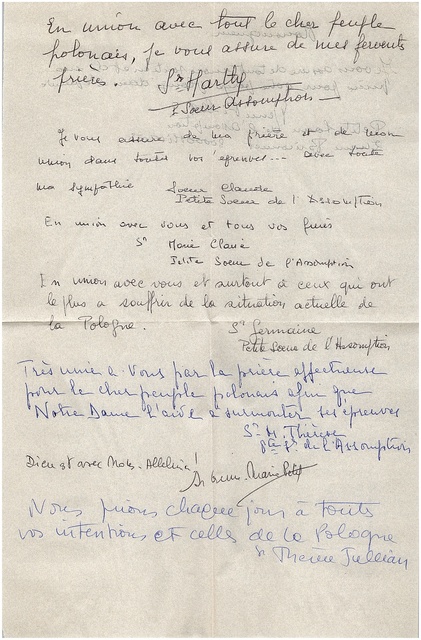 En union avec tout le cher peuple
polonais, je vous assure de mes fervents
prières. Sr Marthe
Sœur Assomption
Je vous assure de ma prière et de mon
union dans toutes vos épreuves... avec toute
ma sympathie Soeur Claude
Petite Soeur de l'Assomption
En union avec vous et tous vos
Sr Marie Claire
Petite Soeur de l'Assomption
En union avec vous et surtout à ceux qui ont
le plus a souffrir de la situation actuelle de
la Pologne.
Sr Germaine
Petite Soeur de l'Assomption
Très unie a vous par la prière affectueuse
pour le cher peuple polonais afin que
Notre Dame l'aide a surmonter ses épreuves
Sr M. Thérèse
Pte Sr de l'Assomption
Dieu est avec Nous. Alleluia!
Marie
Nous prions chaque jour à toutes
vos intentions et celles de la Pologne
Sr Thérèse Jullian